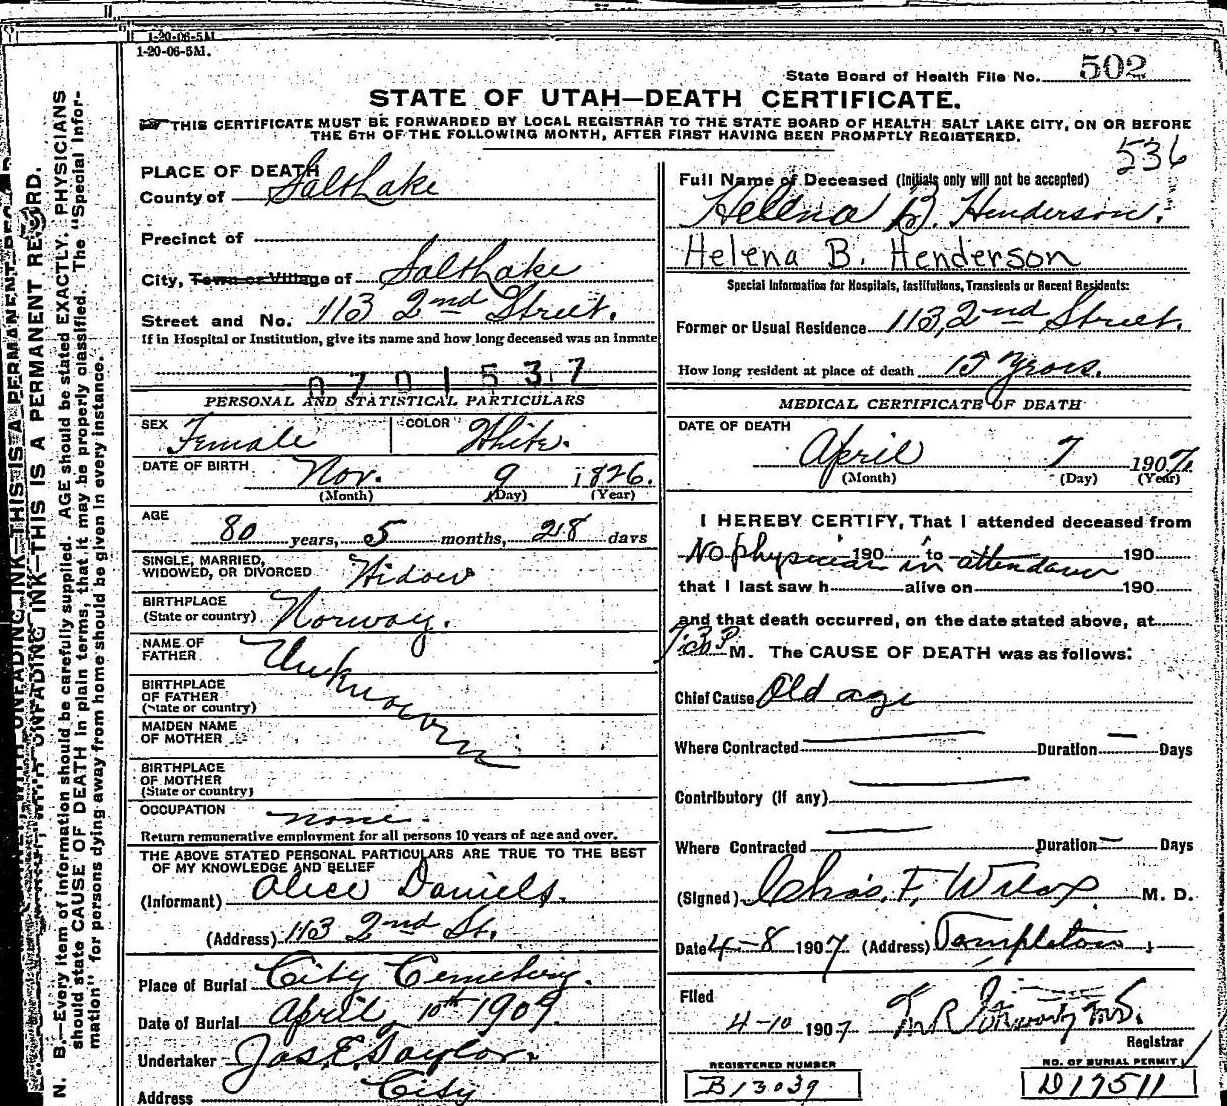 1-20-06-5M.
1-20-06-5M.
State Board of Health File No. 502
STATE OF UTAH—DEATH CERTIFICATE.
THIS CERTIFICATE MUST BE FORWARDED BY LOCAL REGISTRAR TO THE STATE BOARD OF HEALTH SALT LAKE CITY, ON OR BEFORE
THE 5TH OF THE FOLLOWING MONTH, AFTER FIRST HAVING BEEN PROMPTLY REGISTERED.
536
PLACE OF DEATH
County of Salt Lake
Precinct of
City, Town or Village of Salt Lake
Street and No. 113 2nd Street.
If in Hospital or Institution, give its name and how long deceased was an inmate
0701537
PERSONAL AND STATISTICAL PARTICULARS
SEX Female COLOR White.
DATE OF BIRTH Nov. 9 1826.
(Month) (Day) (Year)
AGE
80 years, 5 months, 28 days
SINGLE, MARRIED,
WIDOWED, OR DIVORCED Widow
BIRTHPLACE
(State or country) Norway.
NAME OF
FATHER Unknown
BIRTHPLACE
OF FATHER
(State or country)
MAIDEN NAME
OF MOTHER
BIRTHPLACE
OF MOTHER
(State or country)
OCCUPATION none.
Return remunerative employment for all persons 10 years of age and over.
THE ABOVE STATED PERSONAL PARTICULARS ARE TRUE TO THE BEST
OF MY KNOWLEDGE AND BELIEF
(Informant) Alice Daniels.
(Address) 113 2nd St.
Place of Burial City Cemetery.
Date of Burial April 10th 1907.
Undertaker Jos. E. Taylor.
Address City
Full Name of Deceased (Initials only will not be accepted)
Helena B. Henderson.
Helena B. Henderson
Special Information for Hospitals, Institutions, Transients or Recent Residents:
Former or Usual Residence 113, 2nd Street.
How long resident at place of death 15 years.
MEDICAL CERTIFICATE OF DEATH
DATE OF DEATH
April 7 1907.
(Month) (Day) (Year)
I HEREBY CERTIFY, That I attended deceased from
No physician 190 to in attendance 190
that I last saw h alive on 190
and that death occurred, on the date stated above, at
M. The CAUSE OF DEATH was as follows:
Chief Cause Old age
Where Contracted Duration — Days
Contributory (if any)
Where Contracted Duration — Days
(Signed) Chas. F. Wilcox M. D.
Date 4-8 1907 (Address) Templeton
Filed
4-10 1907
Registrar
REGISTERED NUMBER
B13039
NO. OF BURIAL PERMIT
D17511
THIS IS A PERMANENT RECORD
UNFADING INK—THIS IS A PERMANENT RECORD.
N. B.—Every item of information should be carefully supplied. AGE should be stated EXACTLY. PHYSICIANS
should state CAUSE OF DEATH in plain terms, that it may be properly classified. The "Special Infor-
mation" for persons dying away from home should be given in every instance.